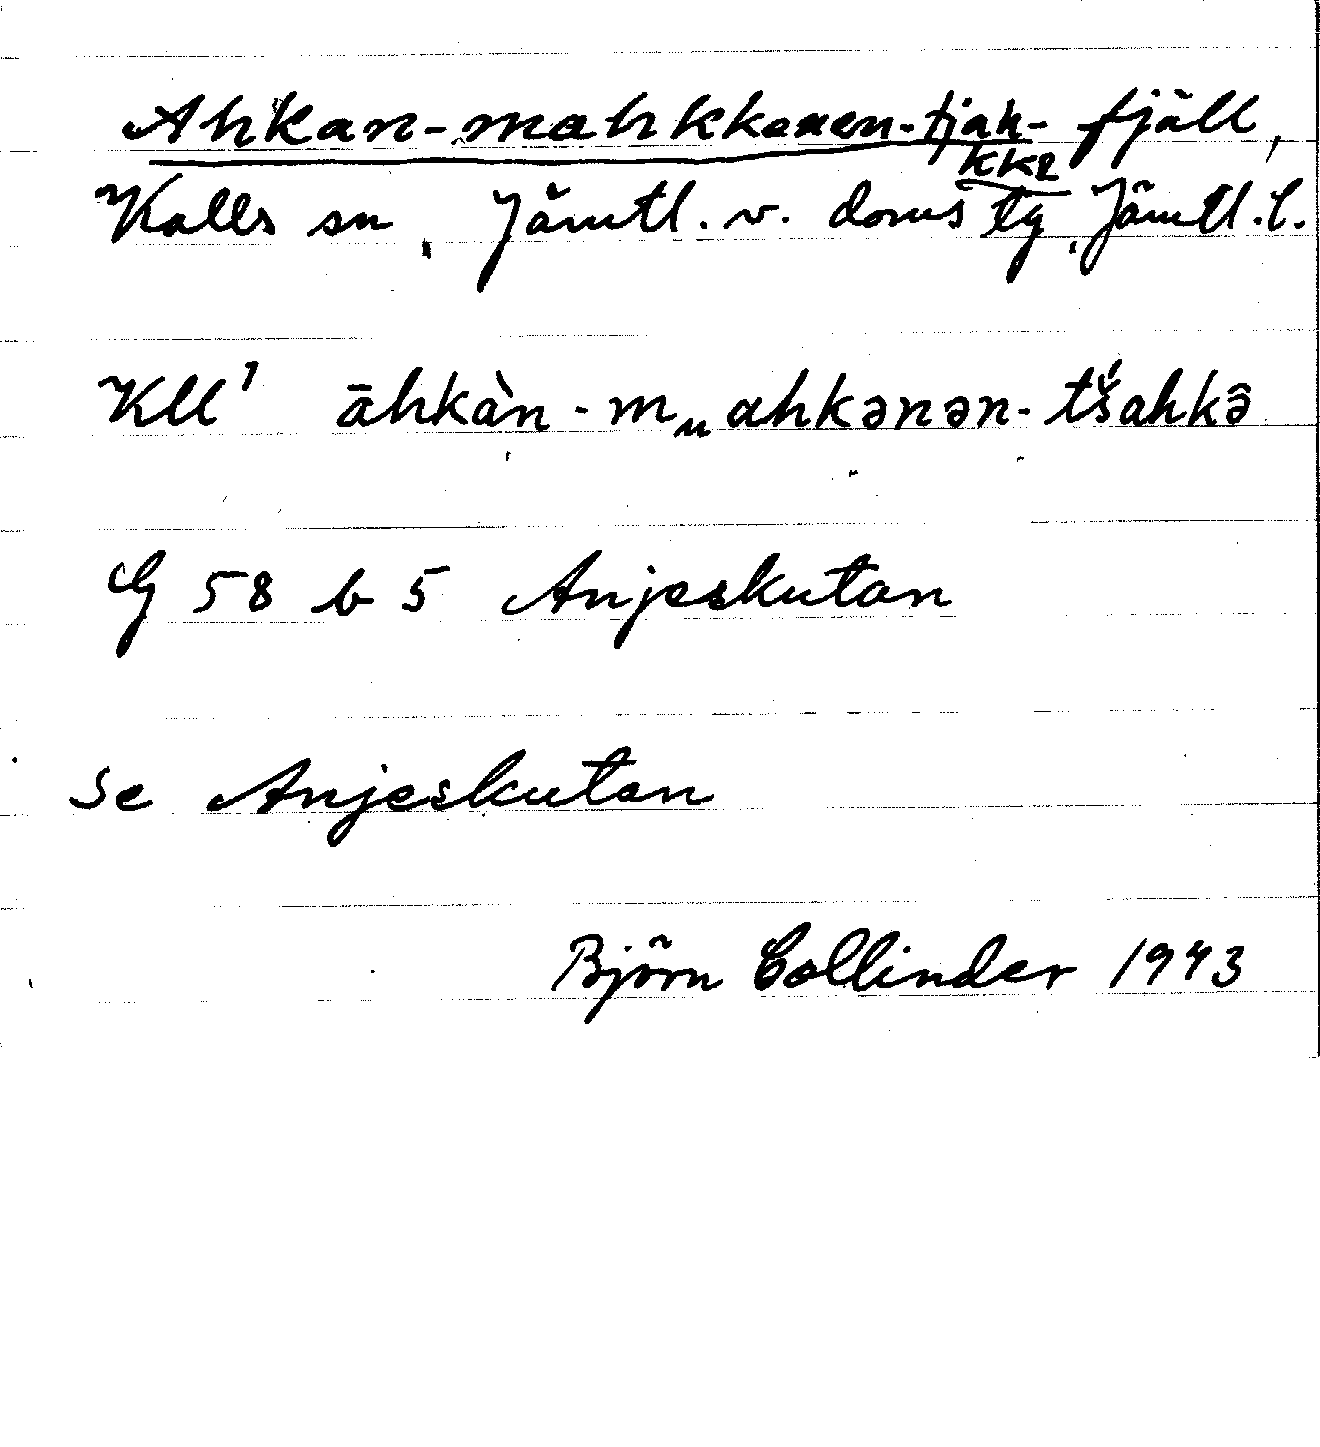 Ahkan-mahkkenen-tjah- fjäll,
kke
Kalls sn, Jämtl. v. doms tg, Jämtl. l.
Kll¹ āhkàn-mᵤahkənən-tš́ahkə̂
G 58 b 5 Anjeskutan
se Anjeskutan
Björn Collinder 1943